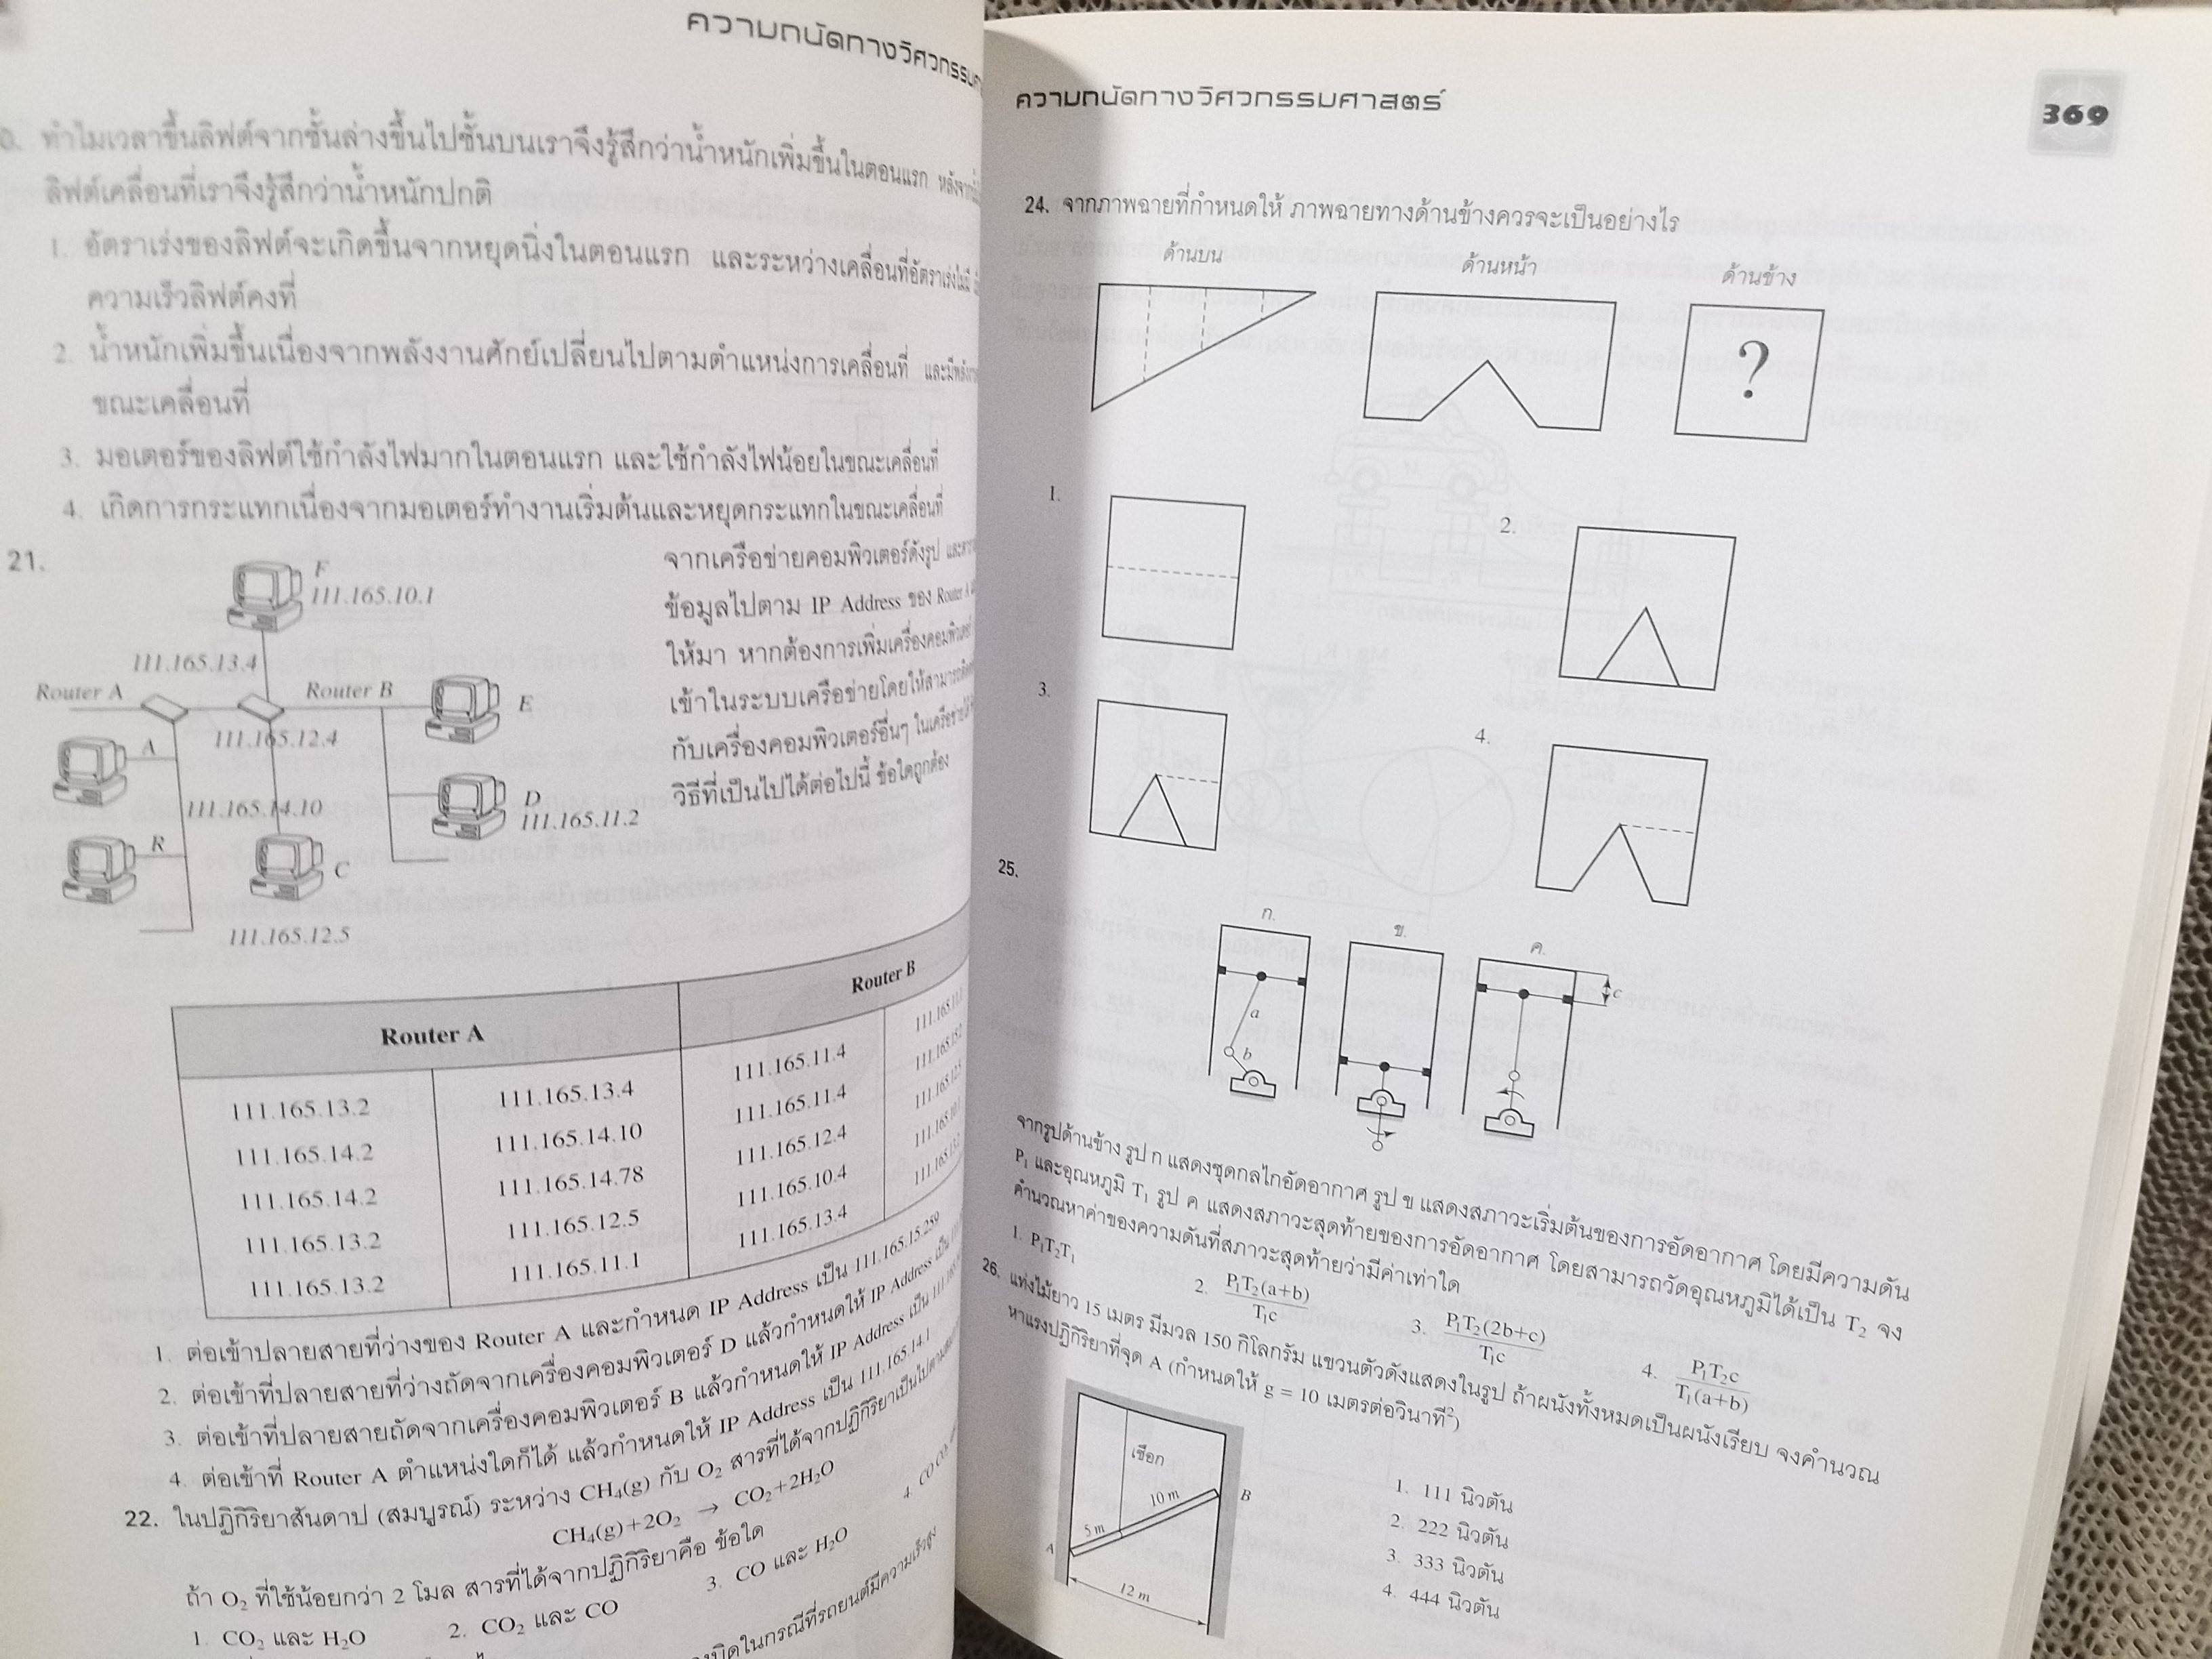 ความถนัดทางวิศวกรรม
ทำไมเวลาขึ้นลิฟต์จากชั้นล่างขึ้นไปชั้นบนเราจึงรู้สึกว่าน้ำหนักเพิ่มขึ้นในตอนแรก
ลิฟต์เคลื่อนที่เราจึงรู้สึกว่าน้ำหนักปกติ
1. อัตราเร่งของลิฟต์จะเกิดขึ้นจากหยุดนิ่งในตอนแรก และระหว่างเคลื่อนที่อัตราเร่งไม่มี
ความเร็วลิฟต์คงที่
2. น้ำหนักเพิ่มขึ้นเนื่องจากพลังงานศักย์เปลี่ยนไปตามตำแหน่งการเคลื่อนที่
ขณะเคลื่อนที่
3. มอเตอร์ของลิฟต์ใช้กำลังไฟมากในตอนแรก และใช้กำลังไฟน้อยในขณะเคลื่อนที่
4. เกิดการกระแทกเนื่องจากมอเตอร์ทำงานเริ่มต้นและหยุดกระแทกในขณะเคลื่อนที่
21.
F
111.165.10.1
111.165.13.4
Router A
Router B
E
111.165.12.4
A
D
111.165.11.2
111.165.14.10
R
C
111.165.12.5
จากเครือข่ายคอมพิวเตอร์ดังรูป
ข้อมูลไปตาม IP Address ของ Router A
ให้มา หากต้องการเพิ่มเครื่องคอมพิวเตอร์
เข้าในระบบเครือข่ายโดยให้สามารถ
กับเครื่องคอมพิวเตอร์อื่นๆ ในเครือข่ายได้
วิธีที่เป็นไปได้ต่อไปนี้ ข้อใดถูกต้อง
Router A Router B
111.165.13.2 111.165.13.4 111.165.11.4
111.165.14.2 111.165.14.10 111.165.11.4
111.165.14.2 111.165.14.78 111.165.12.4
111.165.13.2 111.165.12.5 111.165.10.4
111.165.13.2 111.165.11.1 111.165.13.4
1. ต่อเข้าปลายสายที่ว่างของ Router A และกำหนด IP Address เป็น 111.165.15.259
2. ต่อเข้าที่ปลายสายที่ว่างถัดจากเครื่องคอมพิวเตอร์ D แล้วกำหนดให้ IP Address เป็น
3. ต่อเข้าที่ปลายสายถัดจากเครื่องคอมพิวเตอร์ B แล้วกำหนดให้ IP Address เป็น
4. ต่อเข้าที่ Router A ตำแหน่งใดก็ได้ แล้วกำหนดให้ IP Address เป็น 111.165.14.1
22. ในปฏิกิริยาสันดาป (สมบูรณ์) ระหว่าง CH₄(g) กับ O₂ สารที่ได้จากปฏิกิริยาเป็นไปตาม
CH₄(g)+2O₂ → CO₂+2H₂O
ถ้า O₂ ที่ใช้น้อยกว่า 2 โมล สารที่ได้จากปฏิกิริยาคือ ข้อใด
1. CO₂ และ H₂O 2. CO₂ และ CO 3. CO และ H₂O
ในกรณีที่รถยนต์มีความเร็วสูง
ความถนัดทางวิศวกรรมศาสตร์
369
24. จากภาพฉายที่กำหนดให้ ภาพฉายทางด้านข้างควรจะเป็นอย่างไร
ด้านบน ด้านหน้า ด้านข้าง
?
1.
2.
3.
4.
25.
ก. ข. ค.
a
b
c
จากรูปด้านข้าง รูป ก แสดงชุดกลไกอัดอากาศ รูป ข แสดงสภาวะเริ่มต้นของการอัดอากาศ โดยมีความดัน
P₁ และอุณหภูมิ T₁ รูป ค แสดงสภาวะสุดท้ายของการอัดอากาศ โดยสามารถวัดอุณหภูมิได้เป็น T₂ จง
คำนวณหาค่าของความดันที่สภาวะสุดท้ายว่ามีค่าเท่าใด
1. P₁T₂T₁ 2. P₁T₂(a+b)/T₁c 3. P₁T₂(2b+c)/T₁c 4. P₁T₂c/T₁(a+b)
26. แท่งไม้ยาว 15 เมตร มีมวล 150 กิโลกรัม แขวนตัวดังแสดงในรูป ถ้าผนังทั้งหมดเป็นผนังเรียบ จงคำนวณ
หาแรงปฏิกิริยาที่จุด A (กำหนดให้ g = 10 เมตรต่อวินาที²)
เชือก
10 m
B
5 m
A
12 m
1. 111 นิวตัน
2. 222 นิวตัน
3. 333 นิวตัน
4. 444 นิวตัน